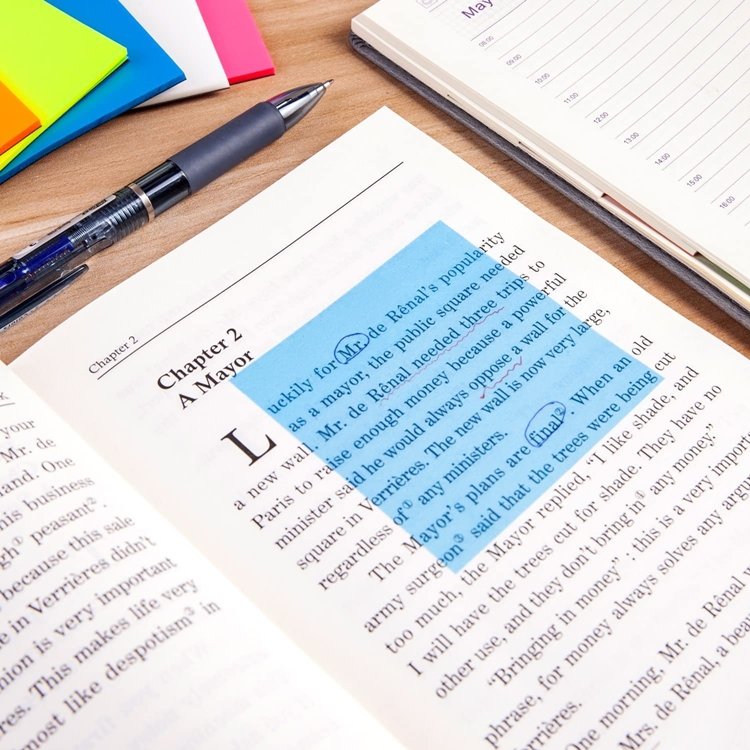 May
08:00
09:00
10:00
11:00
12:00
13:00
14:00
15:00
16:00
K
your
Mr. de
and. One
his business
gh③ peasant②.
because this sale
e in Verrières didn't
nion is very important
res. This makes life very
most like despotism③ in
Chapter 2
Chapter 2
A Mayor
Luckily for Mr. de Rênal's popularity
as a mayor, the public square needed
a new wall. Mr. de Rênal needed three trips to
Paris to raise enough money because a powerful
minister said he would always oppose a wall for the
square in Verrières. The new wall is now very large,
regardless of① any ministers.
The Mayor's plans are final②. When an old
army surgeon③ said that the trees were being cut
too much, the Mayor replied, "I like shade, and
I will have the trees cut for shade. They have no
other use, and they don't bring in④ any money."
"Bringing in money"; this is a very importa
phrase, for money always solves any argu
rrières.
ne morning, Mr. de Rênal
Mrs. de Rênal, a bea